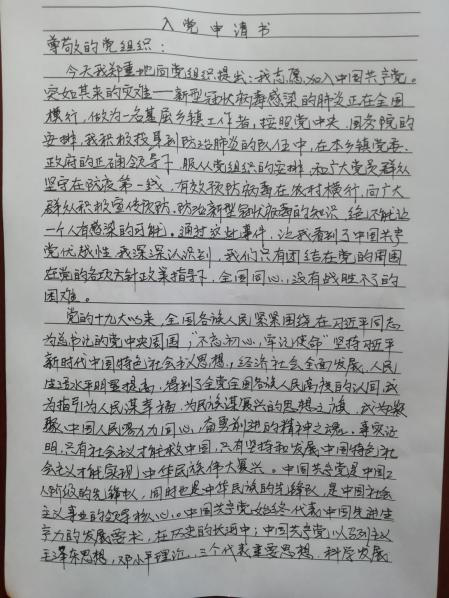 入党申请书
尊敬的党组织：
今天我郑重地向党组织提出：我志愿加入中国共产党。
突如其来的灾难——新型冠状病毒感染的肺炎正在全国
横行，做为一名基层乡镇工作者，按照党中央、国务院的
安排，我积极投身到防治肺炎的队伍中，在本乡镇党委、
政府的正确领导下，服从党组织的安排，和广大党员群众
坚守在防疫第一线，有效预防病毒在农村横行，向广大
群众积极宣传预防、防治新型冠状病毒的知识，绝不能让
一个人有感染的可能。通过这些事件，让我看到了中国共产
党优越性，我深深认识到，我们只有团结在党的周围
在党的各项方针政策指导下，全国同心，没有战胜不了的
困难。
党的十九大以来，全国各族人民紧紧围绕在习近平同志
为总书记的党中央周围，"不忘初心，牢记使命"坚持习近平
新时代中国特色社会主义思想，经济社会全面发展，人民
生活水平明显提高，得到了全党全国各族人民高度的认同，成
为指引为人民谋幸福，为民族谋复兴的思想之旗，成为凝
聚中国人民努力同心，奋勇前进的精神之魂。事实证
明，只有社会主义才能救中国，只有坚持和发展中国特色社
会主义才能实现中华民族伟大复兴。中国共产党是中国工
人阶级的先锋队，同时也是中华民族的先锋队，是中国社会
主义事业的领导核心。中国共产党始终代表中国先进生
产力的发展要求，在历史的长河中；中国共产党以马列主义
毛泽东思想，邓小平理论，三个代表重要思想，科学发展